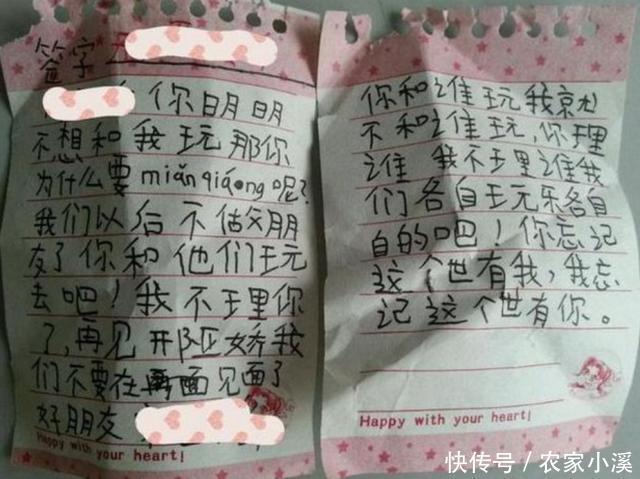 签字
你明明
不想和我玩那你
为什么要miǎnqiáong呢?
我们以后不做朋
友了你和他们玩
去吧!我不理你
了,再见邢娇我
们不要在面见面了
好朋友
Happy with your heart!
你和谁玩我就
不和谁玩,你理
谁我不理谁我
们各自玩乐各自
自的吧!你忘记
这个世有我,我忘
记这个世有你。
Happy with your heart!
快传号/农家小溪